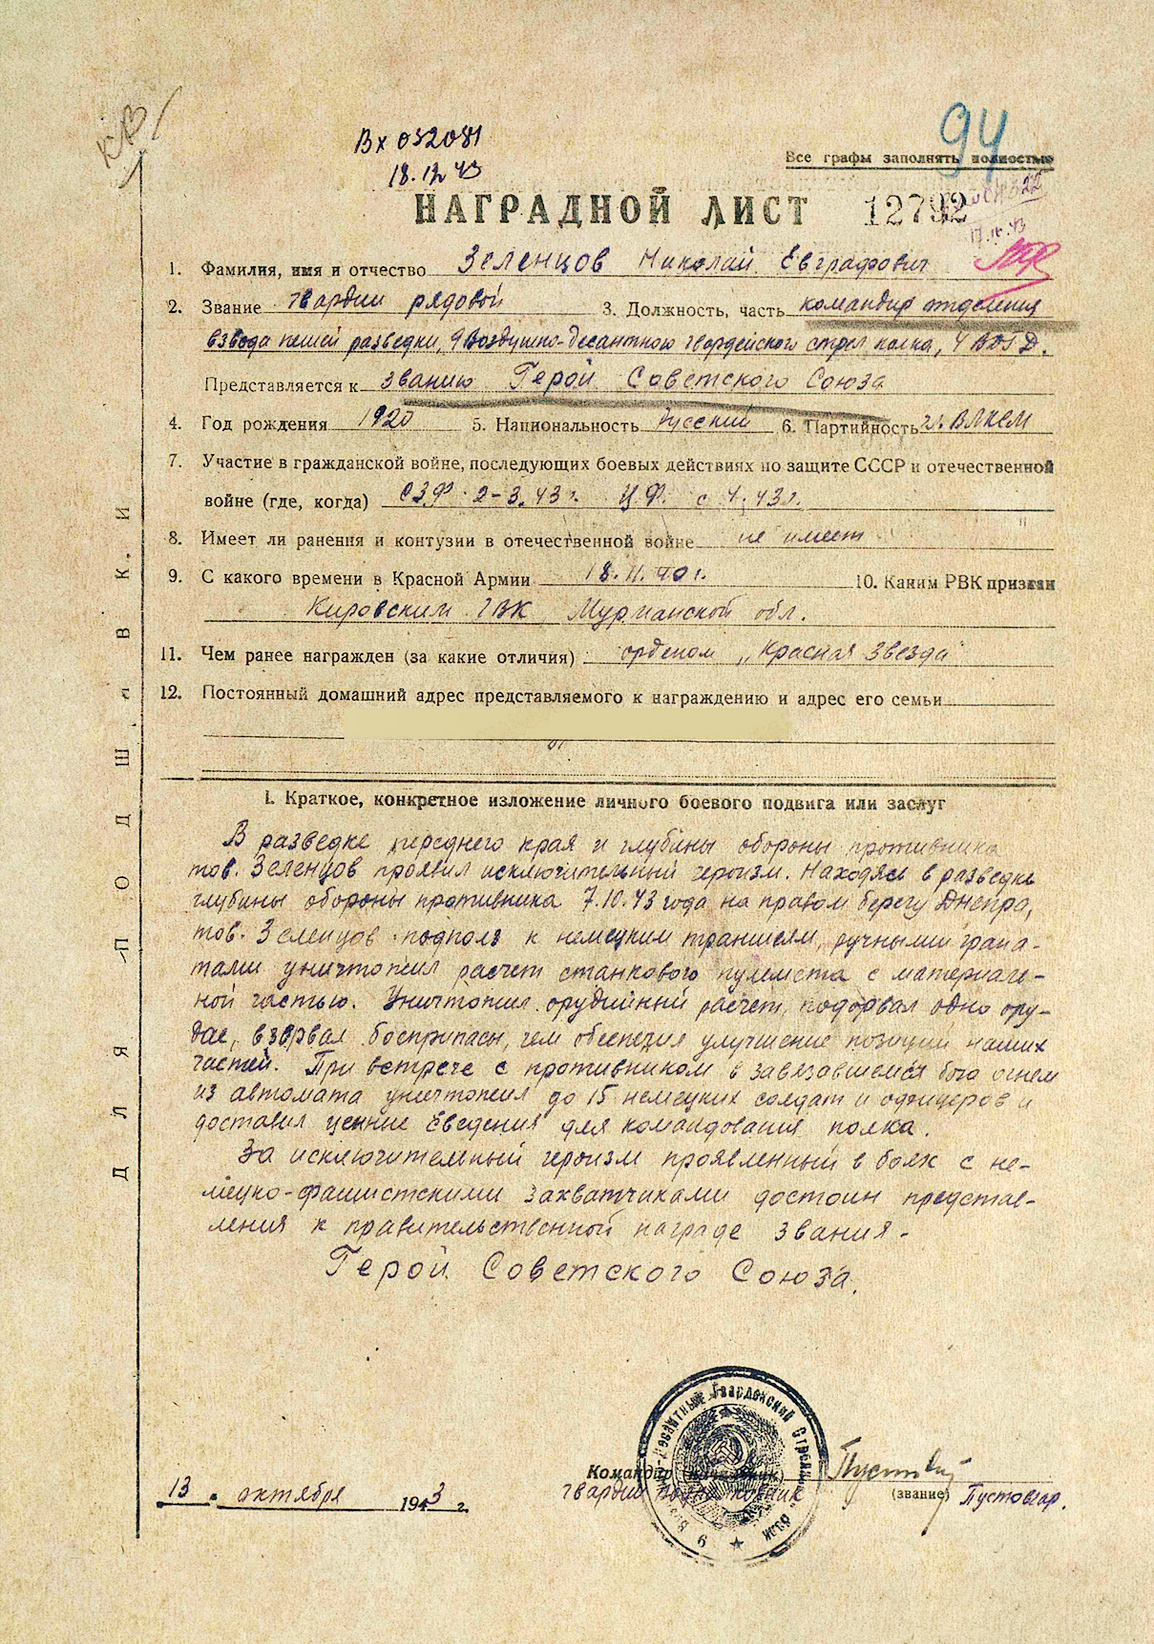 Вх 032081
18.12.43
94
Все графы заполнять полностью
НАГРАДНОЙ ЛИСТ 12792
1. Фамилия, имя и отчество Зеленцов Николай Евграфович
2. Звание гвардии рядовой 3. Должность, часть командир отделения
взвода пешей разведки, 9 Воздушно-десантного гвардейского стрел полка, 4 ВДГД.
Представляется к званию Герой Советского Союза
4. Год рождения 1920 5. Национальность Русский 6. Партийность чл. ВЛКСМ
7. Участие в гражданской войне, последующих боевых действиях по защите СССР и отечественной
войне (где, когда) СЗФ 2-3.43 г. Ц.Ф. с 4.43 г.
8. Имеет ли ранения и контузии в отечественной войне не имеет
9. С какого времени в Красной Армии 18.11.40 г. 10. Каким РВК призван
Кировским ГВК Мурманской обл.
11. Чем ранее награжден (за какие отличия) орденом „Красная Звезда"
12. Постоянный домашний адрес представляемого к награждению и адрес его семьи
ДЛЯ ПОДШИВКИ
I. Краткое, конкретное изложение личного боевого подвига или заслуг
В разведке переднего края и глубины обороны противника
тов. Зеленцов проявил исключительный героизм. Находясь в разведке
глубины обороны противника 7.10.43 года на правом берегу Днепра,
тов. Зеленцов подполз к немецким траншеям, ручными грана-
тами уничтожил расчет станкового пулемета с материаль-
ной частью. Уничтожил орудийный расчет, подорвал одно ору-
дие, взорвал боеприпасы, чем обеспечил улучшение позиций наших
частей. При встрече с противником в завязавшемся бою огнем
из автомата уничтожил до 15 немецких солдат и офицеров и
доставил ценные сведения для командования полка.
За исключительный героизм проявленный в боях с не-
мецко-фашистскими захватчиками достоин представ-
ления к правительственной награде звания -
Герой Советского Союза.
Командир (начальник)
13 " октября 1943 г. гвардии подполковник (звание) Пустовгар.